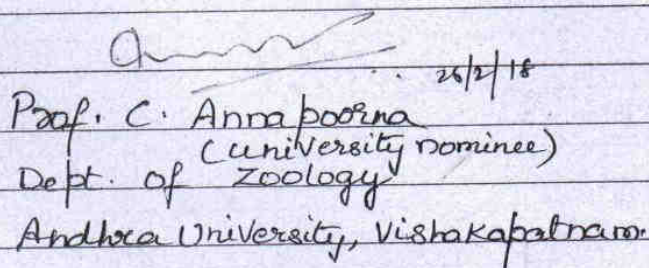 26/2/18
Prof. C. Annapoorna
(university nominee)
Dept. of Zoology
Andhra University, Vishakapatnam.